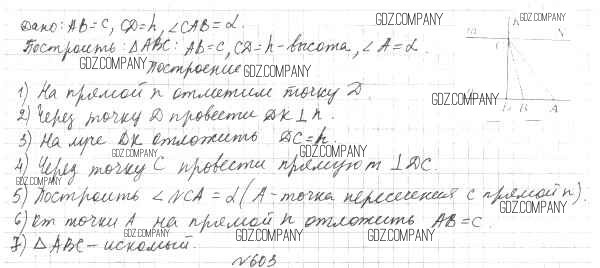 Дано: AB=c, CD=h, ∠CAB=α.
Построить: △ABC: AB=c, CD=h-высота, ∠A=α.
Построение
1) На прямой n отметим точку D.
2) Через точку D провести DK⊥n.
3) На луче DK отложить DC=h.
4) Через точку C провести прямую m ⊥DC.
5) Построить ∠NCA=α (A-точка пересечения с прямой n).
6) От точки A на прямой n отложить AB=c.
7) △ABC-искомый.
№603
GDZ.COMPANY
GDZ.COMPANY
GDZ.COMPANY
GDZ.COMPANY
GDZ.COMPANY
GDZ.COMPANY
GDZ.COMPANY
GDZ.COMPANY
GDZ.COMPANY
GDZ.COMPANY
GDZ.COMPANY
GDZ.COMPANY
GDZ.COMPANY
m
C
N
B
A